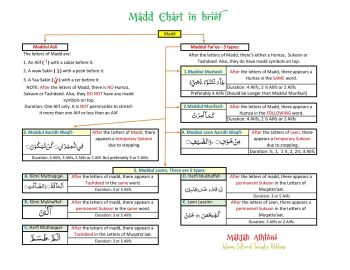 Madd Chart in brief
Madd
Maddul Asli
The letters of Madd are:
1. An Alif ( ا ) with a zabar before it.
2. A waw Sakin ( و ) with a pesh before it.
3. A Yaa Sakin ( ي ) with a zer before it.
NOTE: After the letters of Madd, there is NO Humza, Sukoon or Tashdeed. Also, they DO NOT have any madd symbols on top.
Duration: One Alif only. It is NOT permissible to stretch it more than one Alif or less than an Alif
Maddul Far'ee - 5 types:
After the letters of Madd, there's either a Humza, Sukoon or Tashdeed. Also, they do have madd symbols on top.
1. Maddul Muttasil-
After the letters of Madd, there appears a Humza in the SAME word.
Duration: 4 Alifs, 2 ½ Alifs or 2 Alifs
Preferably 4 Alifs (Should be Longer than Maddul Munfasil)
2.Maddul Munfasil-
After the letters of Madd, there appears a Humza in the FOLLOWING word.
Duration: 4 Alifs, 2 ½ Alifs or 2 Alifs
3. Maddul Aaridh Waqfi-
After the letters of Madd, there appears a temporary Sukoon due to stopping.
Duration: 5 Alifs, 3 Alifs, 2 Alifs or 1 Alif. But preferably 5 or 3 Alifs.
4. Maddul Leen Aaridh Waqfi-
After the letters of Leen, there appears a temporary Sukoon due to stopping.
5. Maddul Laazim. There are 5 types:
A. Kilmi Muthaqqal-
After the letters of madd, there appears a Tashdeed in the same word.
Duration: 3 or 5 Alifs
B. Kilmi Mukhaffaf-
After the letters of madd, there appears a permanent Sukoon in the same word.
Duration: 3 or 5 Alifs
C. Harfi Muthaqqal-
After the letters of madd, there appears a Tashdeed in the letters of Muqatta'aat.
Duration: 3 or 5 Alifs
D. Harfi Mukhaffaf-
After the letters of madd, there appears a permanent Sukoon in the Letters of Muqatta'aat.
Duration: 3 or 5 Alifs
E. Leen Laazim-
After the letters of Leen, there appears a permanent Sukoon in the letters of Muqatta'aat.
Duration: 3 or 5 Alifs
Maktab Athlone
Islamic Cultural Society Athlone